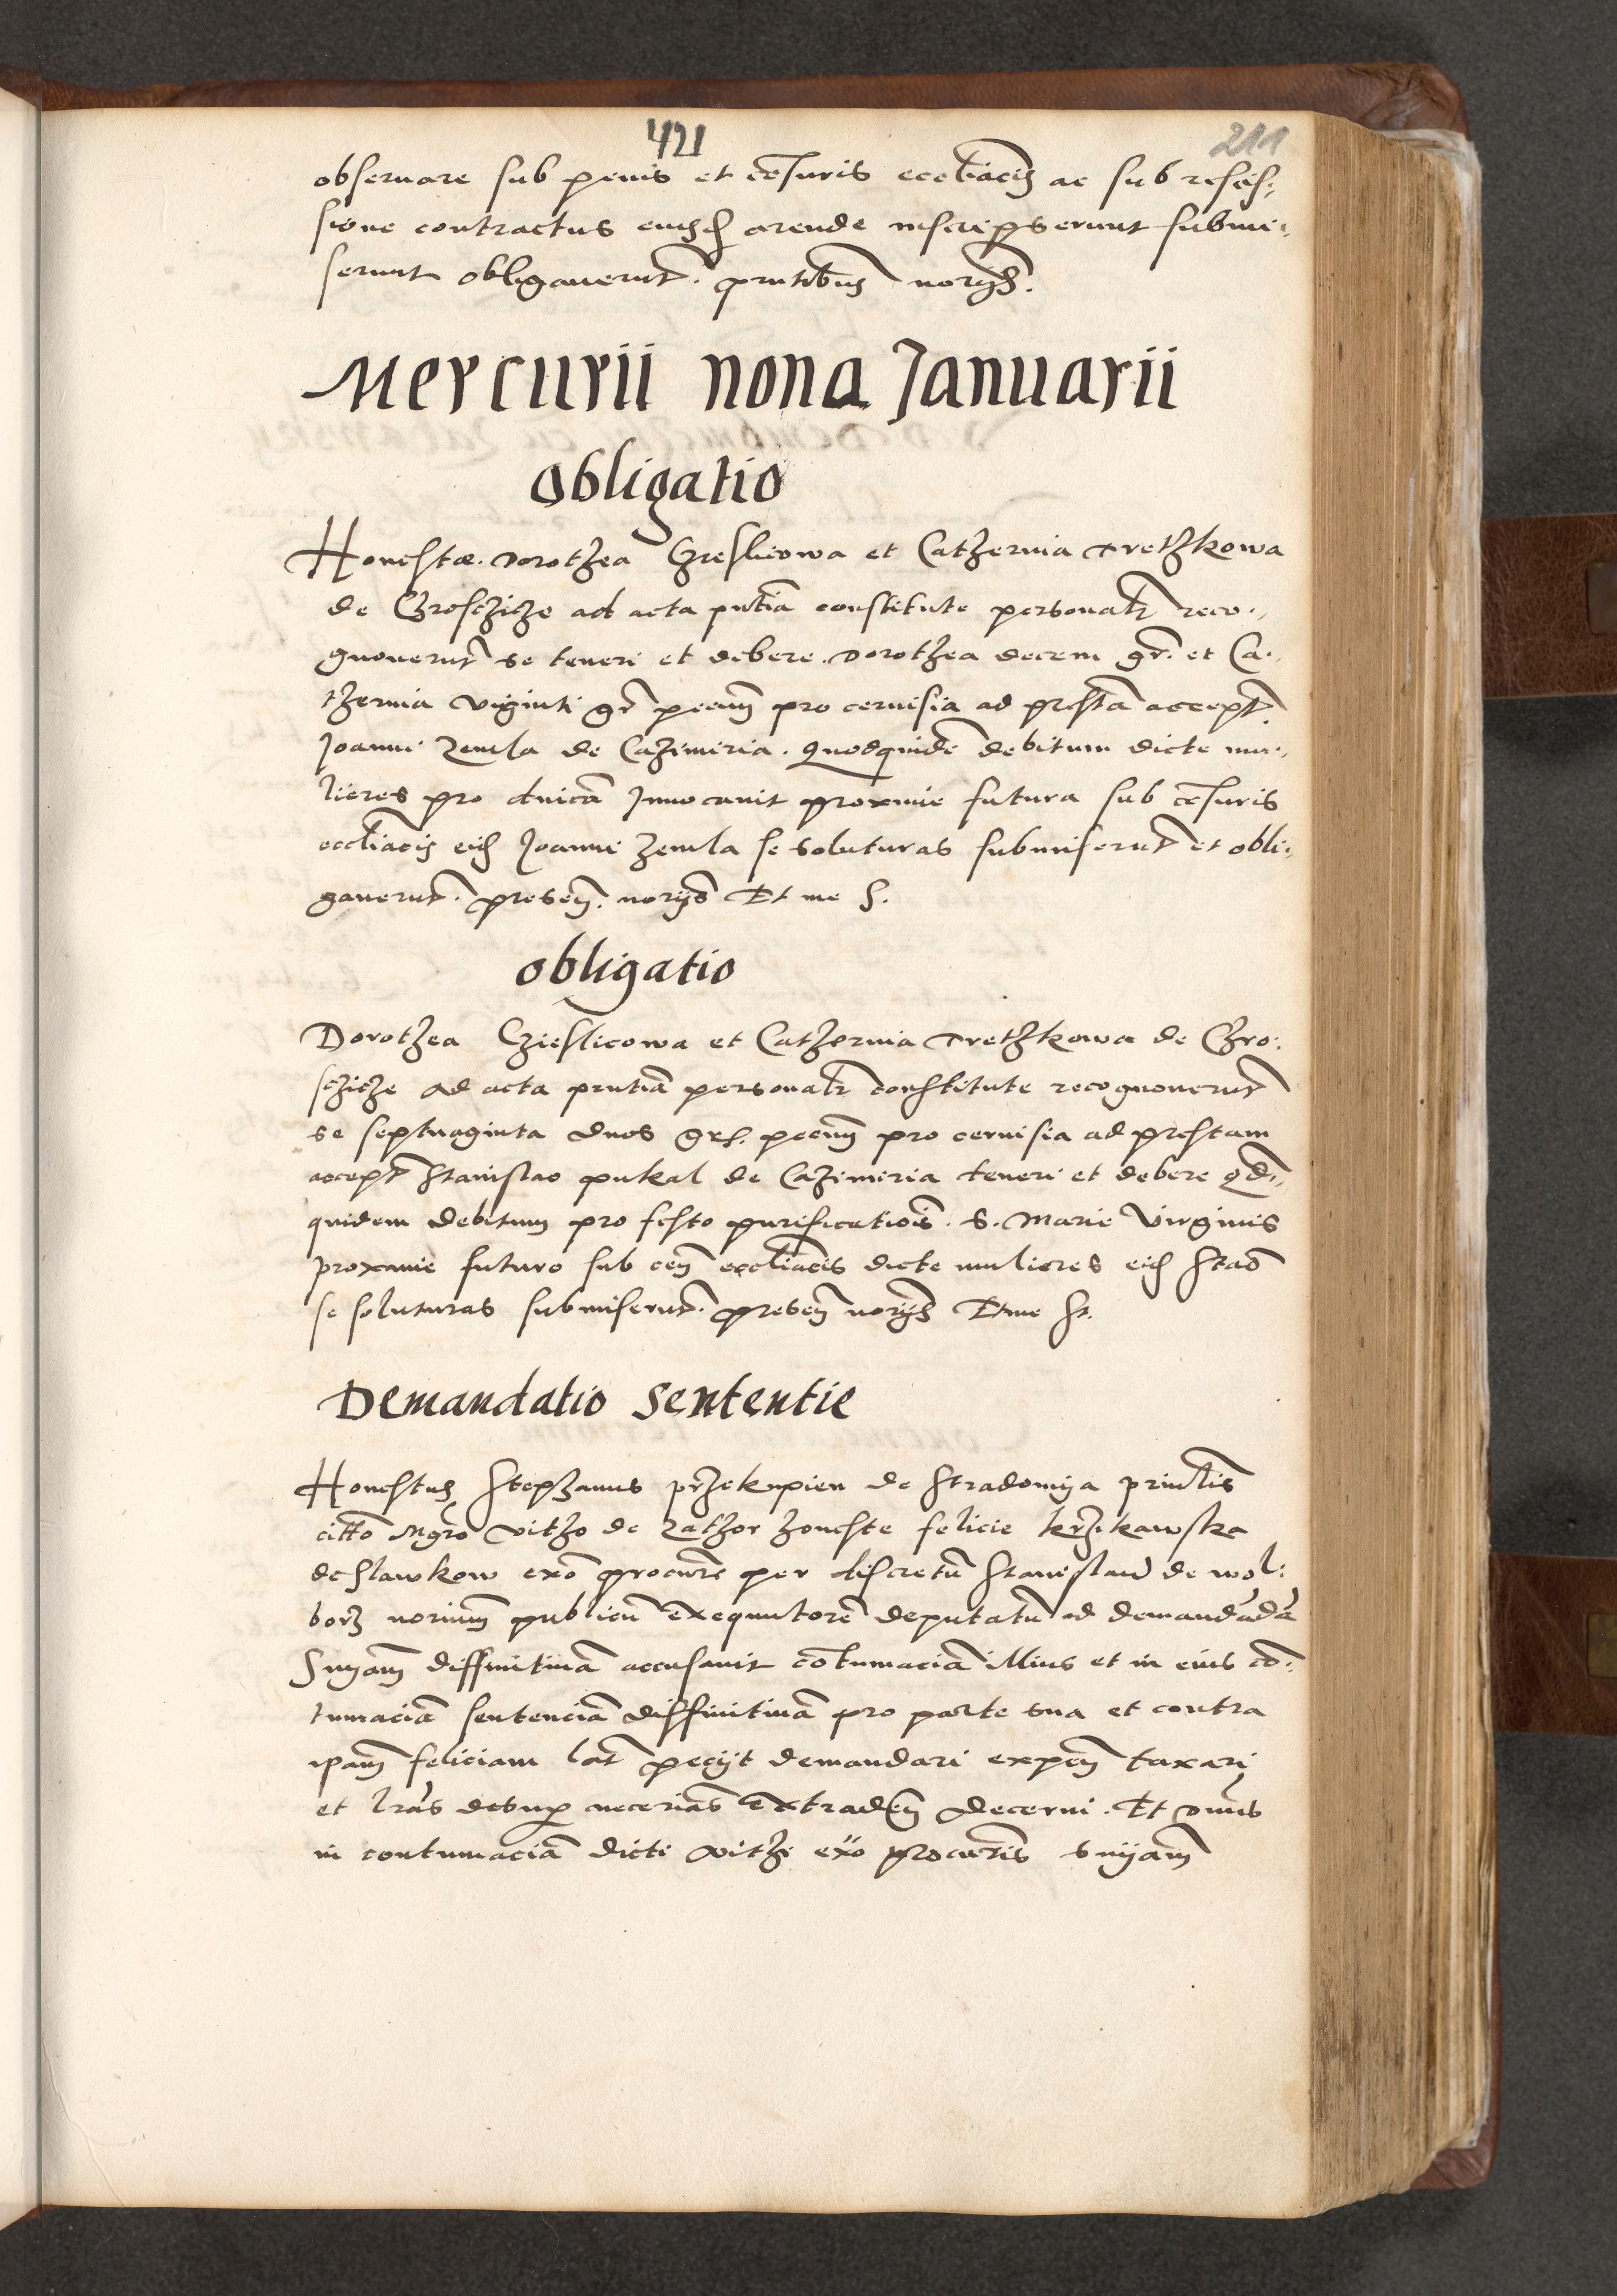 421
211
observare sub penis et cēsuris eccl̄iacis ac sub rescis:
sione contractus eiusd arende inscripserunt submi:
serunt obligaverūt. prntibus norys.
Mercurii nona Januarii
Obligatio
Honestæ. Dorothea Czieslicowa et Catherina Trethkowa
de Chrosczicze ad acta pn̄tia constitute personalr reco:
gnoverūt se teneri et debere. Dorothea decem gr. et Ca:
therina viginti gr pecun pro cervisia ad prestā accept
Joanni Zemla de Cazimiria. Quodquidē debitum dicte mu:
lieres pro dnicā Invocavit proxime futura sub cēsuris
eccl̄iacis eid Joanni Zemla se soluturas submiserūt et obli:
gaverūt. presen. norys Et me S.
Obligatio
Dorothea Czieslicowa et Catherina Trethkowa de Chro:
sczicze ad acta prntiā personalr constitute recognoverūt
se septuaginta duos grs. pecun pro cervisia ad prestam
accept Stanislao pukal de Cazimiria teneri et debere qd:
quidem debitum pro festo purificatiōis. S. Marie Virginis
proxime futuro sub cen eccl̄iacis dicte mulieres eid Stao
se soluturas submiserūt. presen norys Et me St.
Demandatio Sententie
Honestus Stephanus przekupien de Stradomya principlis
citto Mgro vitho de Zathor honeste felicie krzikawska
de Slawkow exo procure per discretū Stanislaū de wol:
borz norium publicū exequutorē deputatū ad demandādā
Sniam diffinitivā accusavit cōtumaciā illius et in eius cō:
tumaciā sentenciā diffinitivā pro parte sua et contra
ipam feliciam lat pecyt demandari expen taxari
et lrās desup necerias extraden decerni. Et dnus
in contumaciā dicti vithi exo procuris sniam